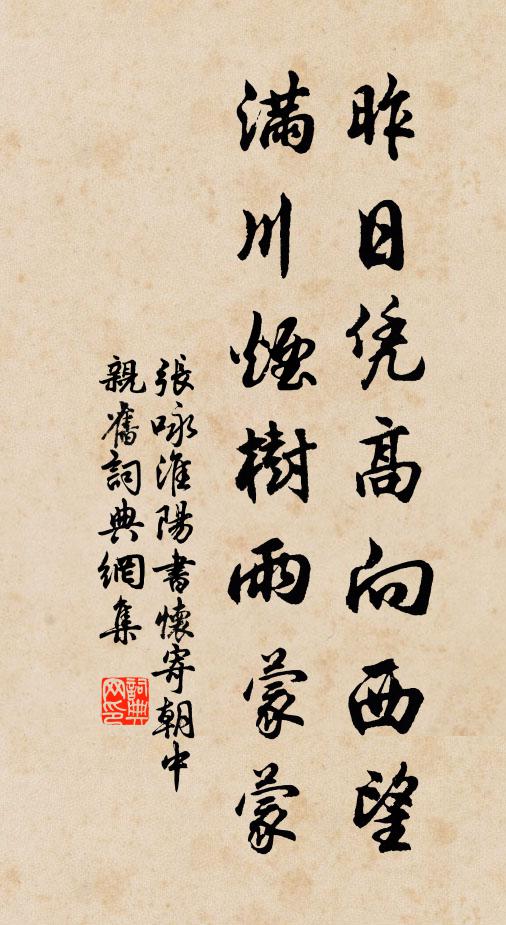 昨日凭高向西望
滿川煙樹雨蒙蒙
張咏淮陽書懷寄朝中
親舊詞典網集
詞典網印